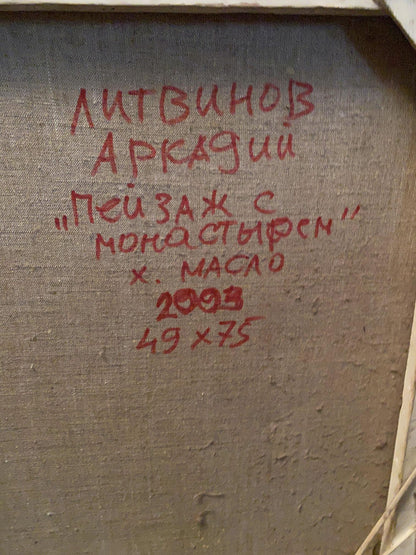 ЛИТВИНОВ
АРКАДИЙ
„ПЕЙЗАЖ С
МОНАСТЫРЕМ"
х. МАСЛО
2003
49 х 75